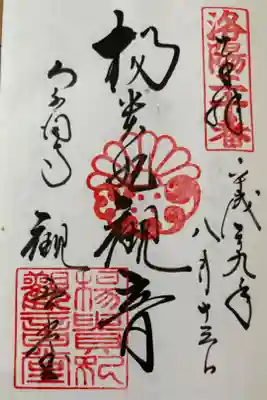 洛陽二十番
奉拝
平成廿九年
八月十三日
楊貴妃観音
観音堂
楊貴妃
観音堂